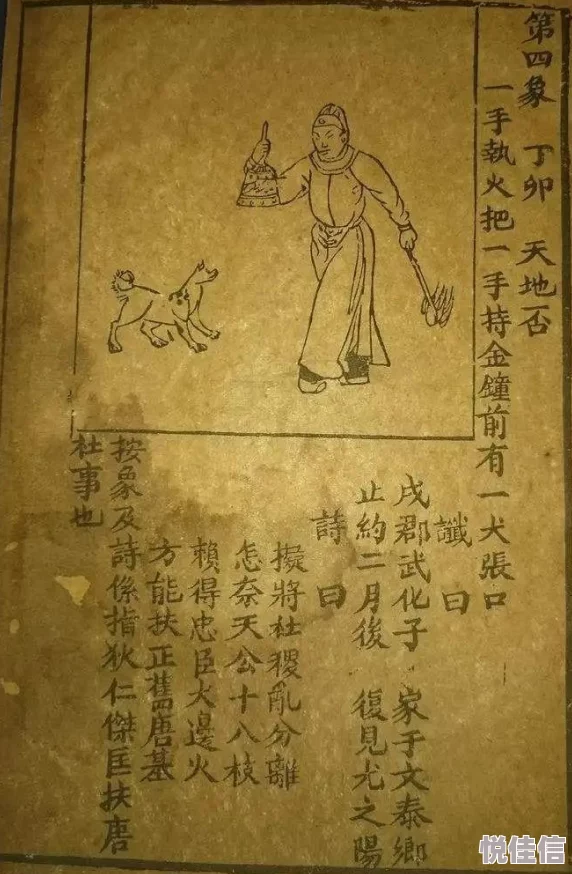 第四象 丁卯 天地否
一手執火把一手持金鐘前有一犬張口
讖曰
戌郡武化子 家于文泰鄉
止約二月後 復見尤之陽
詩曰
擬將杜稷亂分離
怎奈天公十八枝
賴得忠臣火邊火
方能扶正舊唐基
按象及詩係指狄仁傑匡扶唐
社事也
悦佳信